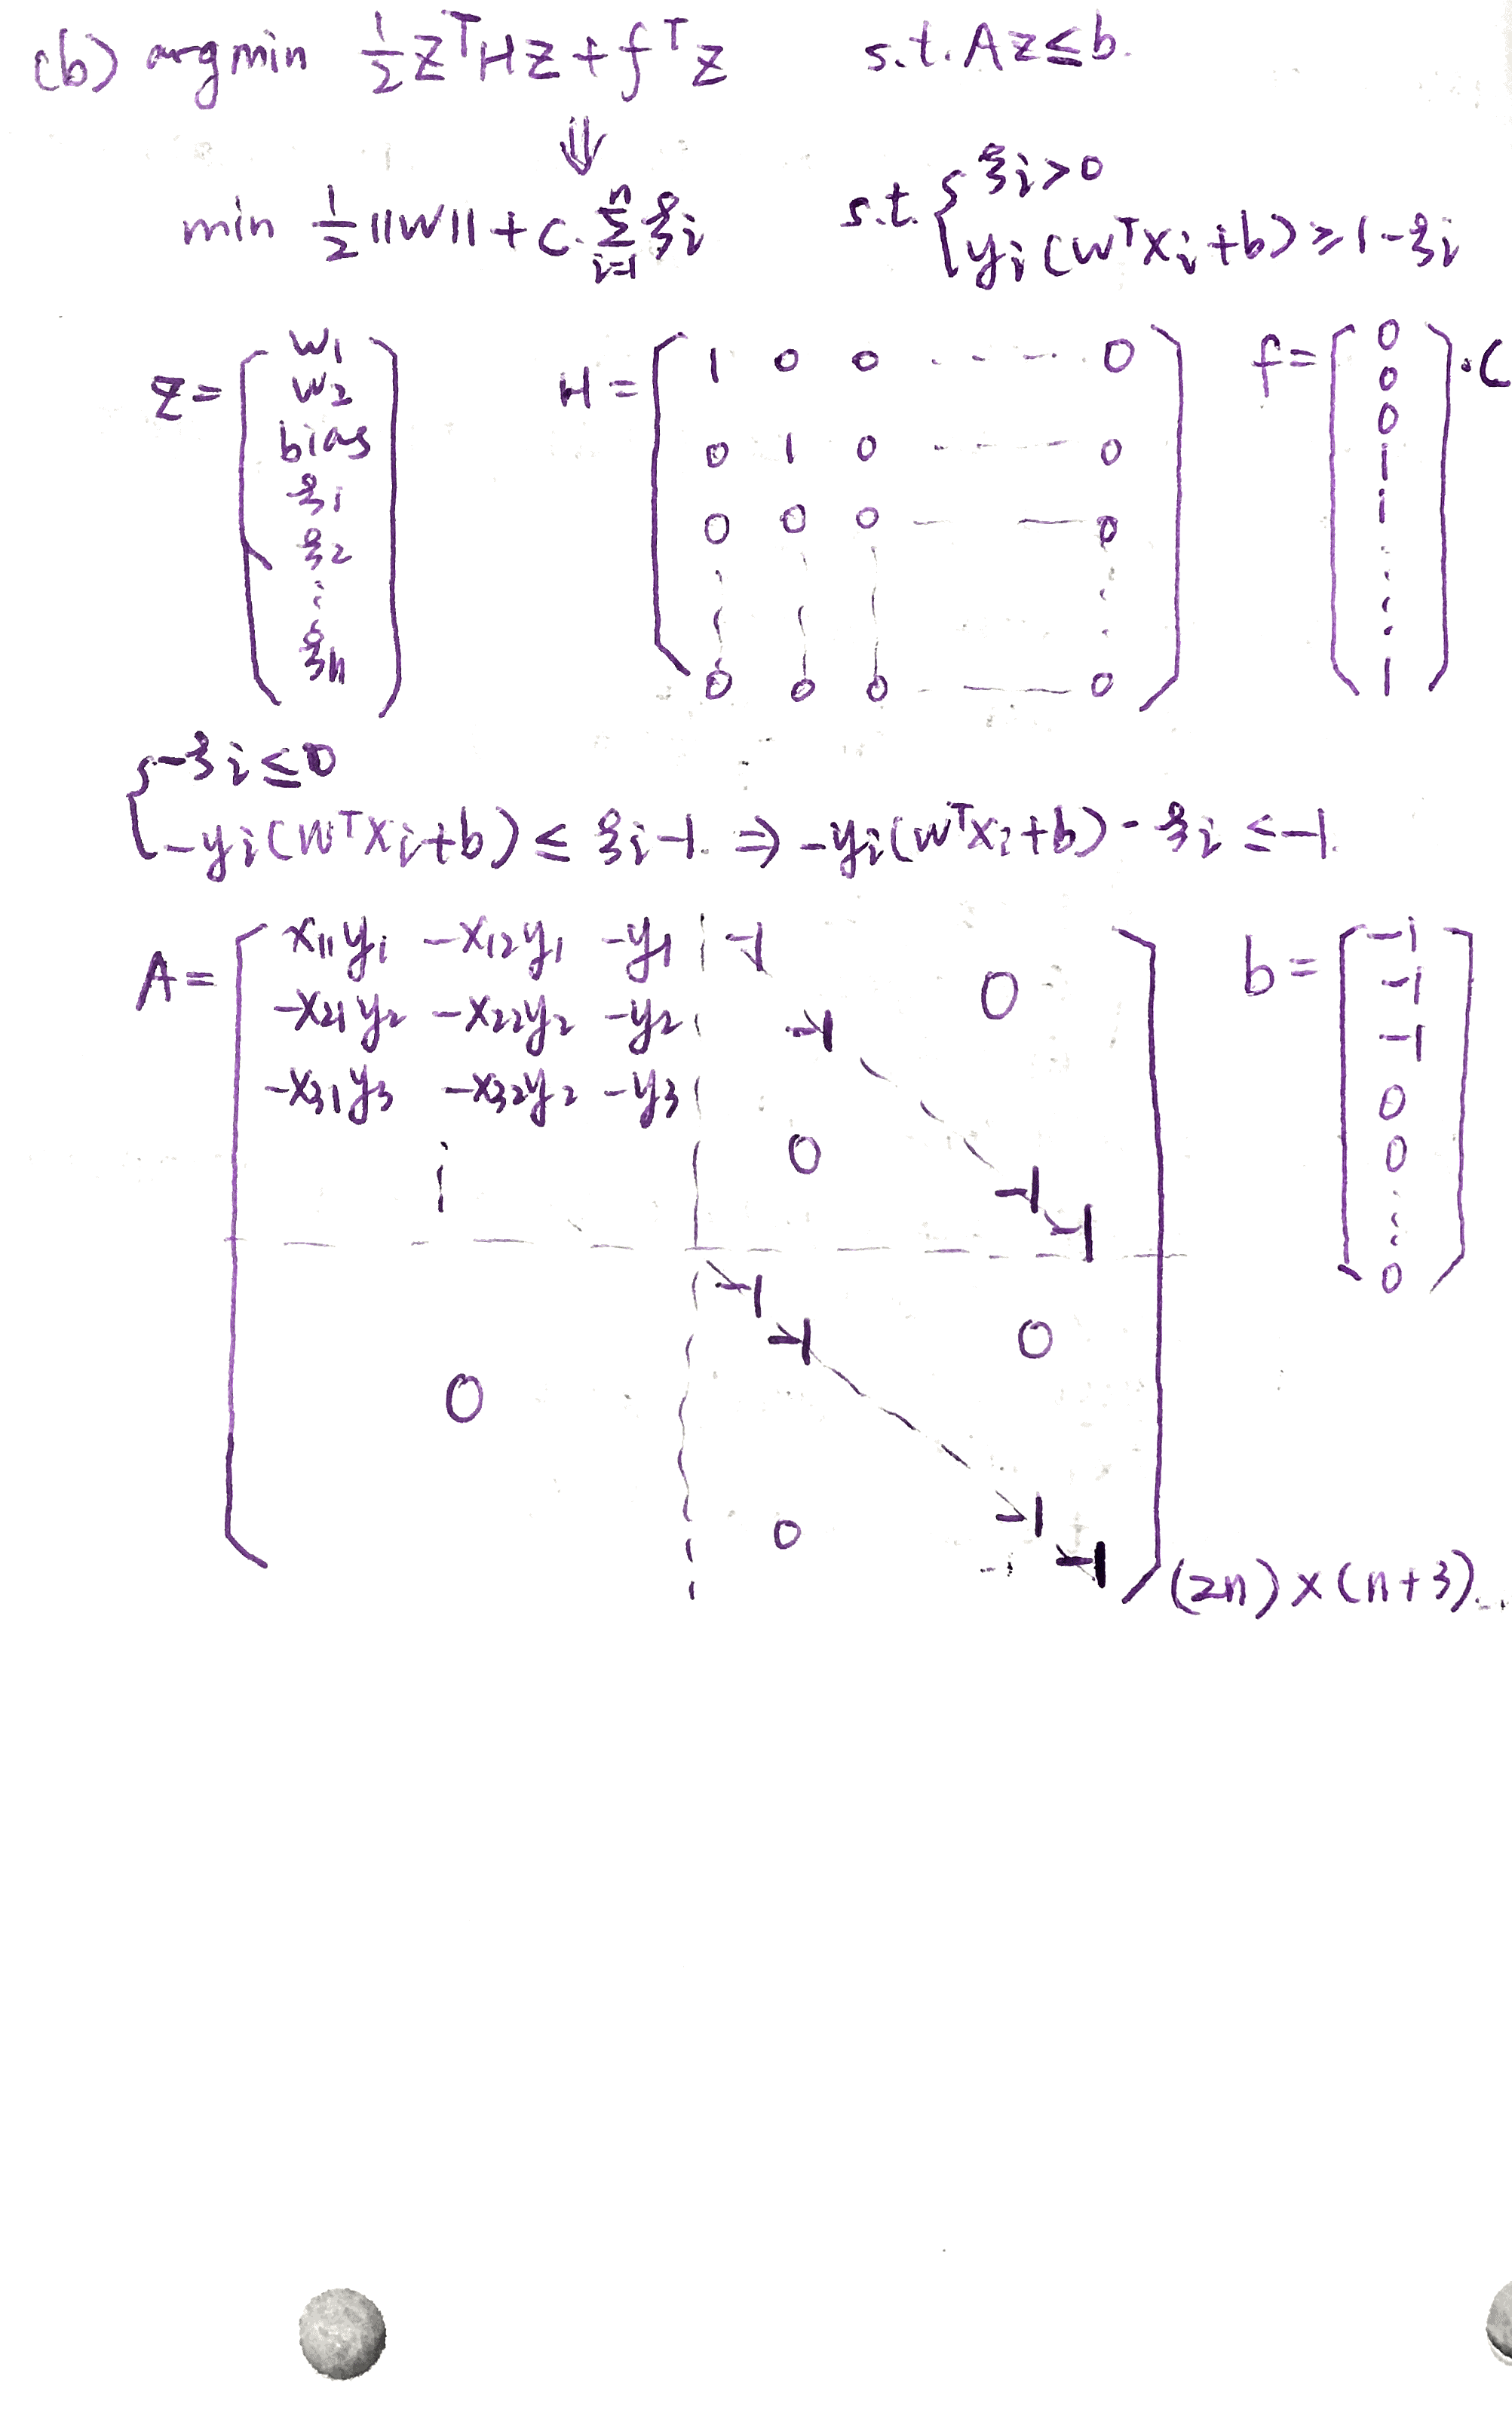 (b) argmin 1/2 z^T H z + f^T z s.t. A z ≤ b.
⇓
min 1/2 ||W|| + C. Σ_{i=1}^{n} ξi s.t. { ξi > 0
yi (W^T xi + b) ≥ 1 - ξi
z = ( w1 w2 bias ξ1 ξ2 ⋮ ξn )
H = [ 1 0 0 - - - - 0
0 1 0 - - - - 0
0 0 0 - - - 0
⋮ ⋮ ⋮ ⋮
0 0 0 - - - 0 ]
f = [ 0 0 0 1 1 ⋮ 1 ] · C
{ -ξi ≤ 0
-yi (W^T xi + b) ≤ ξi - 1. ⇒ -yi (W^T xi + b) - ξi ≤ -1.
A = [ x11y1 -x12y1 -y1 | -1 0
-x21y2 -x22y2 -y2 | -1
-x31y3 -x32y2 -y3 |
⋮ 0 -1
-1
-1
-1 0
0
0 -1
-1 ] (2n) × (n+3)
b = [ -1 -1 -1 0 0 ⋮ 0 ]